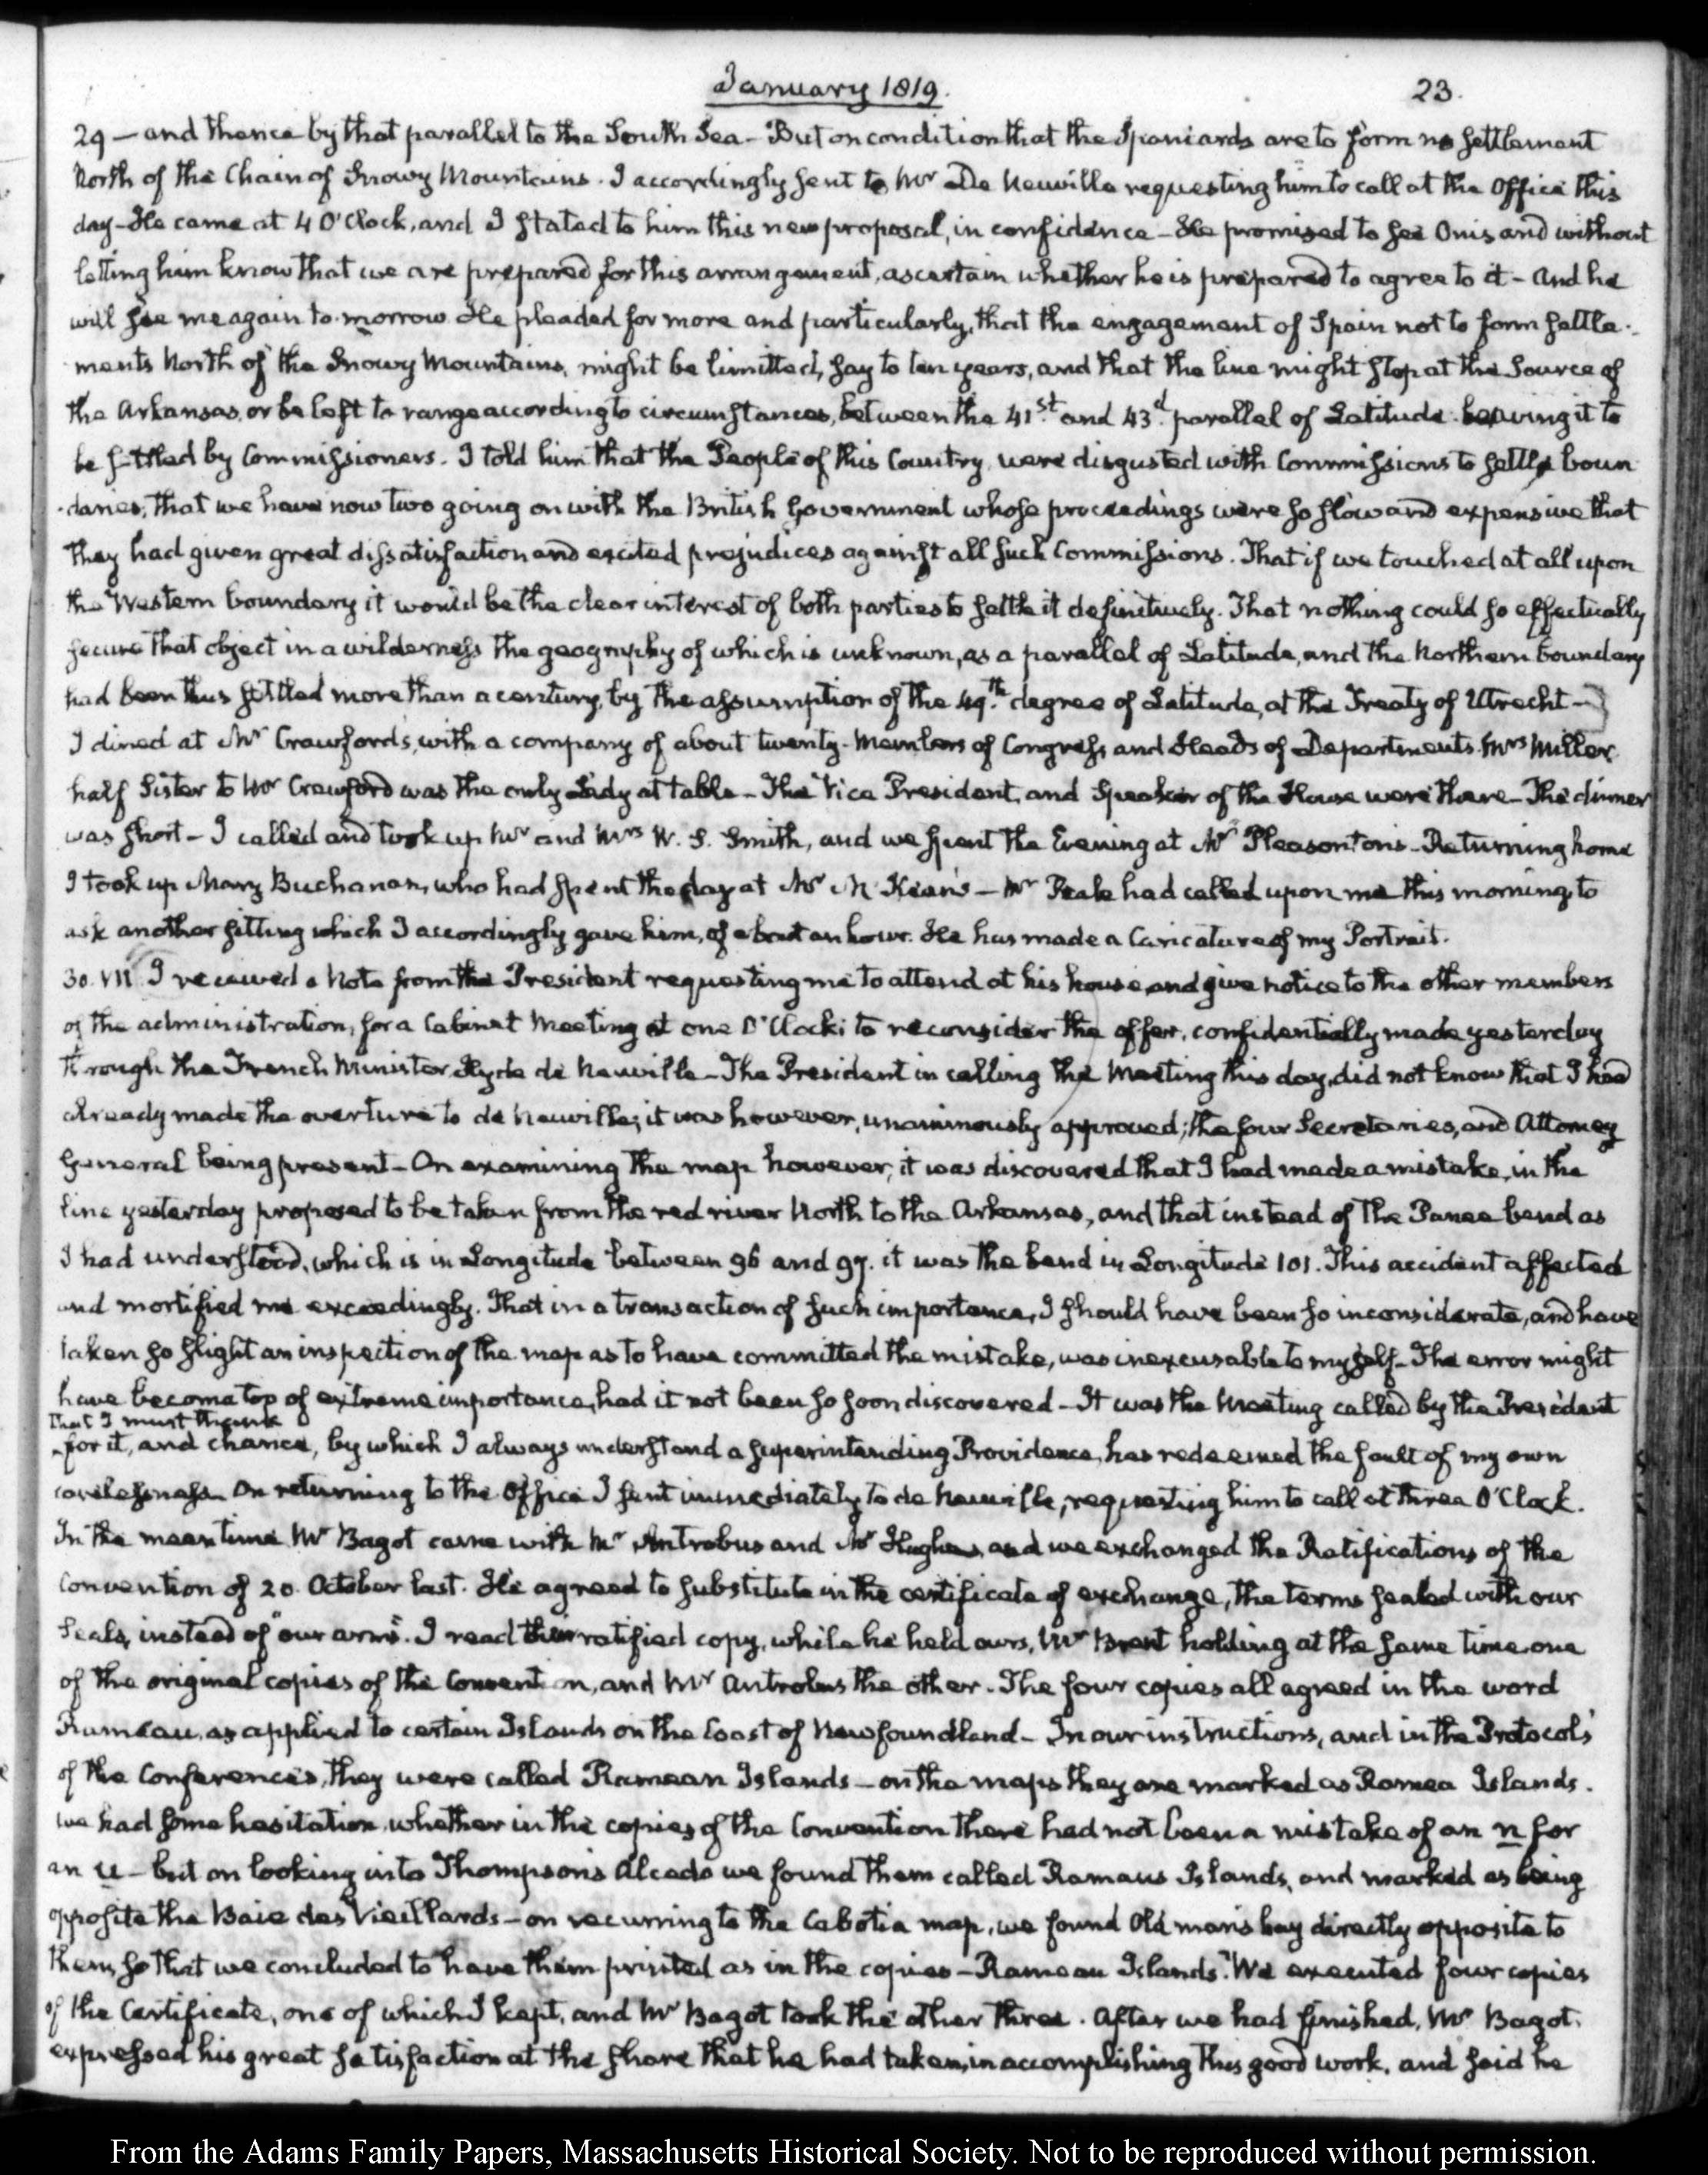 January 1819.
23.
29 — and thence by that parallel to the South Sea - But on condition that the Spaniards are to form no settlement
North of the Chain of Snowy Mountains. I accordingly sent to Mr De Neuville requesting him to call at the Office this
day - He came at 4 O'Clock, and I stated to him this new proposal, in confidence - He promised to see Onis and without
letting him know that we are prepared for this arrangement, ascertain whether he is prepared to agree to it - And he
will see me again to-morrow He pleaded for more and particularly, that the engagement of Spain not to form settle-
ments North of the Snowy Mountains, might be limitted, say to ten years, and that the line might stop at the Source of
the Arkansas, or be left to range according to circumstances, between the 41st. and 43d. parallel of Latitude. leaving it to
be settled by Commissioners. I told him that the People of this Country were disgusted with Commissions to settle boun
daries, that we have now two going on with the British Government whose proceedings were so slow and expensive that
they had given great dissatisfaction and excited prejudices against all such Commissions. That if we touched at all upon
the Western boundary it would be the clear interest of both parties to settle it definitively. That nothing could so effectually
secure that object in a wilderness the geography of which is unknown, as a parallel of Latitude, and the Northern boundary
had been thus settled more than a century, by the assumption of the 49.th degree of Latitude, at the Treaty of Utrecht -
I dined at Mr Crawford's, with a company of about twenty- Members of Congress and Heads of Departments. Mrs Miller
half Sister to Mr Crawford was the only Lady at table - The Vice President, and Speaker of the House were there - The dinner
was short - I called and took up Mr and Mrs W. S. Smith, and we spent the Evening at Mr Pleasonton's - Returning home
I took up Mary Buchanan, who had spent the day at Mr M Kean's — Mr Peale had called upon me this morning, to
ask another sitting which I accordingly gave him, of about an hour. He has made a Caricature of my Portrait.
30. VII. I received a Note from the President requesting me to attend at his house, and give notice to the other members
of the administration, for a Cabinet Meeting at one O'Clock; to reconsider the offer, confidentially made yesterday
through the French Minister Hyde de Neuville - The President in calling the Meeting this day, did not know that I had
already made the overture to de Neuville; it was however, unanimously approved; the four Secretaries, and Attorney
General being present - On examining the map however, it was discovered that I had made a mistake, in the
line yesterday proposed to be taken from the red river North to the Arkansas, and that instead of the Panee bend as
I had understood, which is in Longitude between 96 and 97. it was the bend in Longitude 101. This accident affected
and mortified me exceedingly. That in a transaction of such importance, I should have been so inconsiderate, and have
taken so slight an inspection of the map as to have committed the mistake, was inexcusable to myself - The error might
have become too of extreme importance, had it not been so soon discovered - It was the Meeting called by the President
that I must thank
for it, and chance, by which I always understand a superintending Providence, has redeemed the fault of my own
carelessness. On returning to the Office I sent immediately to de Neuville, requesting him to call at three O'Clock.
In the mean time Mr Bagot came with Mr Antrobus and Mr Hughes, and we exchanged the Ratifications of the
Convention of 20. October last. He agreed to substitute in the certificate of exchange, the terms sealed with our
Seals, instead of "our arms". I read their ratified copy, while he held ours, Mr Brent holding at the same time one
of the original copies of the Convention, and Mr Antrobus the other. The four copies all agreed in the word
Rameau, as applied to certain Islands on the Coast of Newfoundland - In our instructions, and in the Protocols
of the Conferences, they were called Ramean Islands - on the maps they are marked as Ramea Islands.
we had some hesitation, whether in the copies of the Convention there had not been a mistake of an n for
an u - but on looking into Thompson's Alcedo we found them called Ramaus Islands, and marked as being
opposite the Baie des Vieillards - on recurring to the Cabotia map, we found Old man's bay directly opposite to
them, so that we concluded to have them printed as in the copies - Rameau Islands. We executed four copies
of the Certificate, one of which I kept, and Mr Bagot took the other three. After we had finished, Mr Bagot.
expressed his great satisfaction at the share that he had taken, in accomplishing this good work, and said he
From the Adams Family Papers, Massachusetts Historical Society. Not to be reproduced without permission.